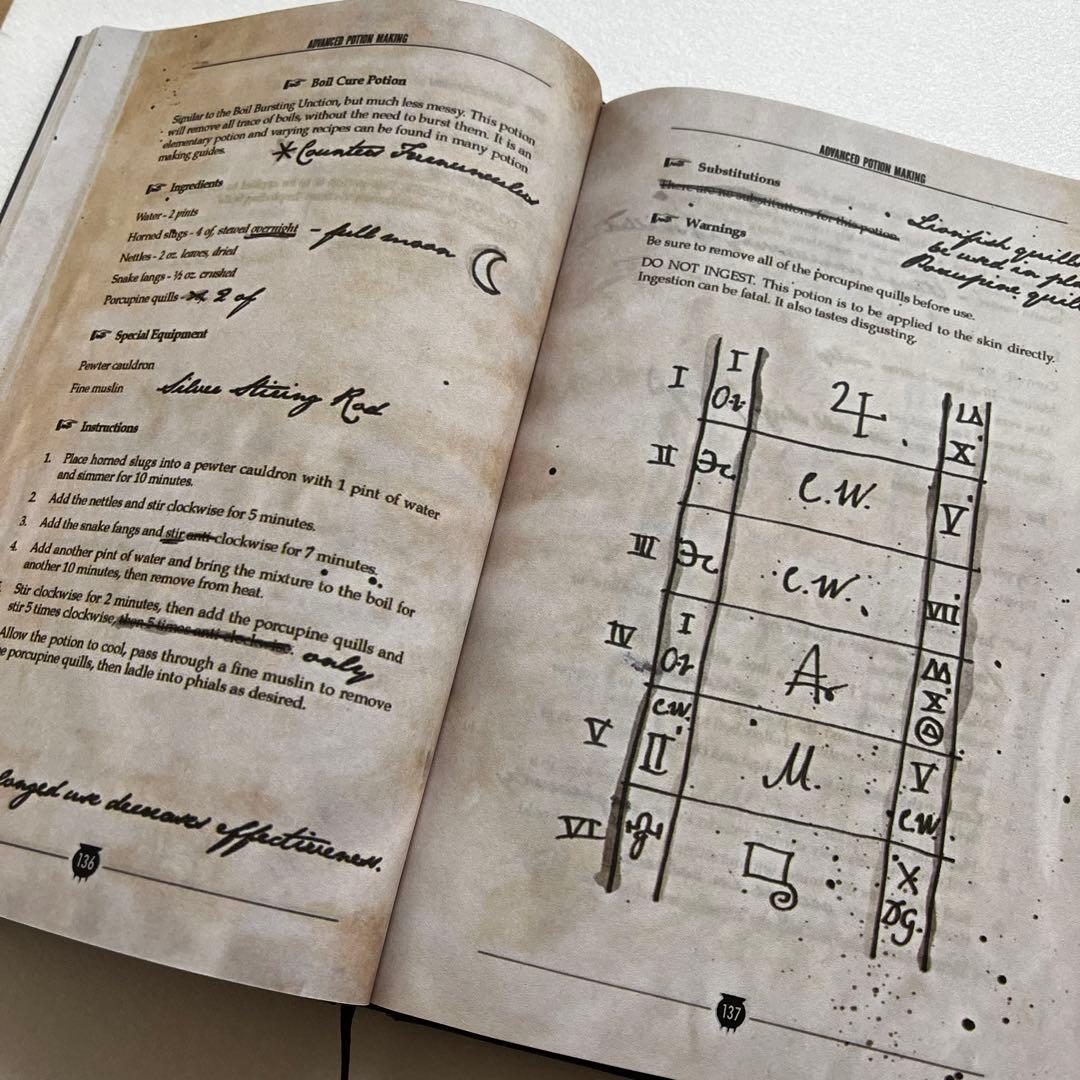 ADVANCED POTION MAKING
Boil Cure Potion
Similar to the Boil Bursting Unction, but much less messy. This potion
will remove all trace of boils, without the need to burst them. It is an
elementary potion and varying recipes can be found in many potion
making guides.
*Counters Ferunculus
Ingredients
Water - 2 pints
Horned slugs - 4 of, stewed overnight - full moon
Nettles - 2 oz. leaves, dried
Snake fangs - ½ oz. crushed
Porcupine quills - 2 of
Special Equipment
Pewter cauldron
Fine muslin
Silver Stiring Rod
Instructions
1. Place horned slugs into a pewter cauldron with 1 pint of water
and simmer for 10 minutes.
2 Add the nettles and stir clockwise for 5 minutes.
3. Add the snake fangs and stir anti-clockwise for 7 minutes.
4. Add another pint of water and bring the mixture to the boil for
another 10 minutes, then remove from heat.
Stir clockwise for 2 minutes, then add the porcupine quills and
stir 5 times clockwise, then 5 times anti-clockwise. only
Allow the potion to cool, pass through a fine muslin to remove
porcupine quills, then ladle into phials as desired.
use effectiveness.
136
ADVANCED POTION MAKING
Substitutions
There are no substitutions for this potion.
Lionfish
be used in
Porcupine
Warnings
Be sure to remove all of the porcupine quills before use.
DO NOT INGEST. This potion is to be applied to the skin directly.
Ingestion can be fatal. It also tastes disgusting.
I I
X
II C.W. V
III C.W. VII
I
IV X
C.W.
V II M. V
C.W.
VI
X
137